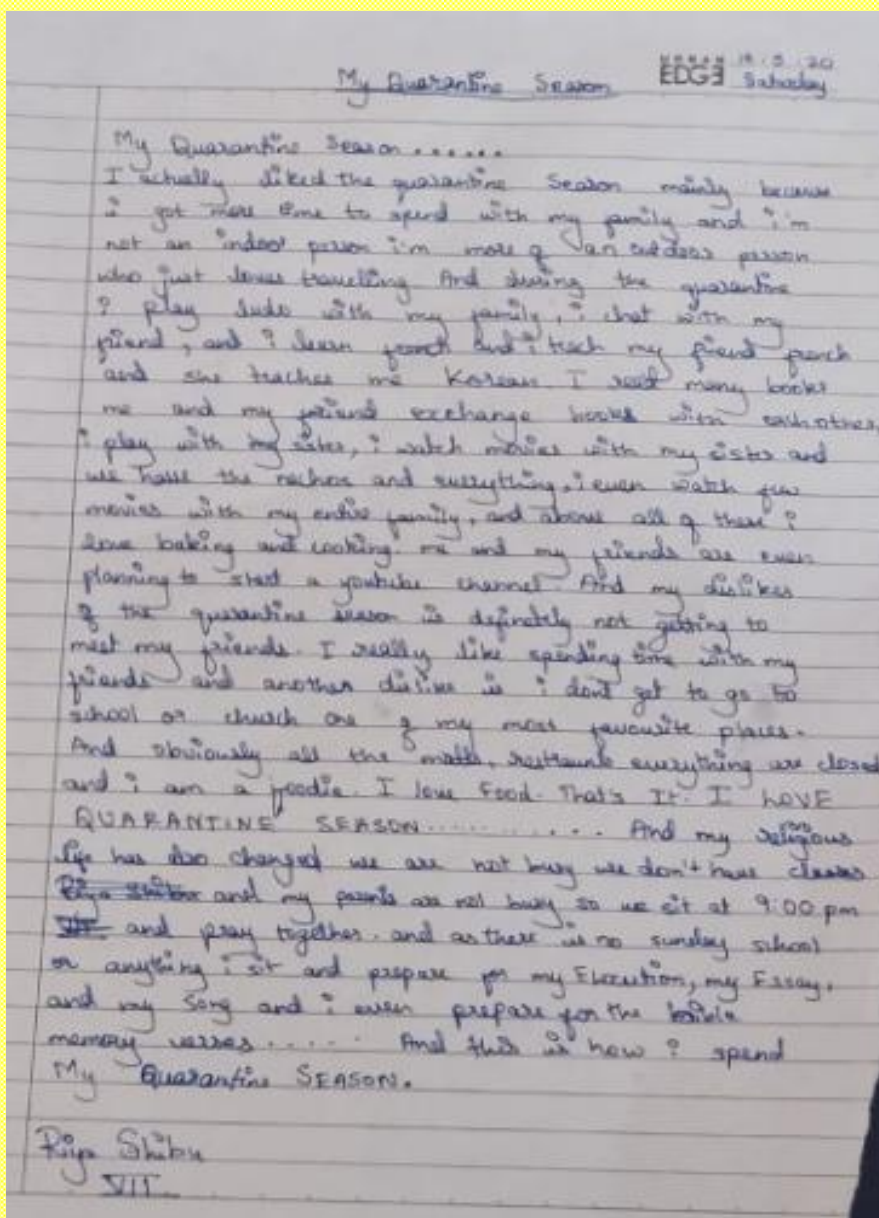 My Quarantine Season
EDGE
Saturday
My Quarantine Season ......
I actually liked the quarantine Season mainly because
i got more time to spend with my family and i'm
not an indoor person i'm more of an outdoor person
who just loves travelling And during the quarantine
I play ludo with my family, i chat with my
friend, and I learn french and i teach my friend french
and she teaches me Korean. I read many books
me and my friend exchange books with each other,
i play with my sister, i watch movies with my sister and
we have the nachos and everything, i even watch few
movies with my entire family, and above all of these I
love baking and cooking. me and my friends are even
planning to start a youtube channel. And my dislikes
of the quarantine season is definately not getting to
meet my friends. I really like spending time with my
friends and another dislike is i dont get to go to
school or church one of my most favourite places.
And obviously all the malls, everything are closed
and i am a foodie. I love Food. That's It. I LOVE
QUARANTINE SEASON........... And my religious
life has also changed we are not busy we don't have classes
and my parents are not busy so we sit at 9:00 pm
and pray together. and as there is no sunday school
or anything i sit and prepare for my Elocution, my Essay,
and my Song and i even prepare for the
memory verses..... And this is how I spend
My Quarantine SEASON.
Riya Shibu
VII